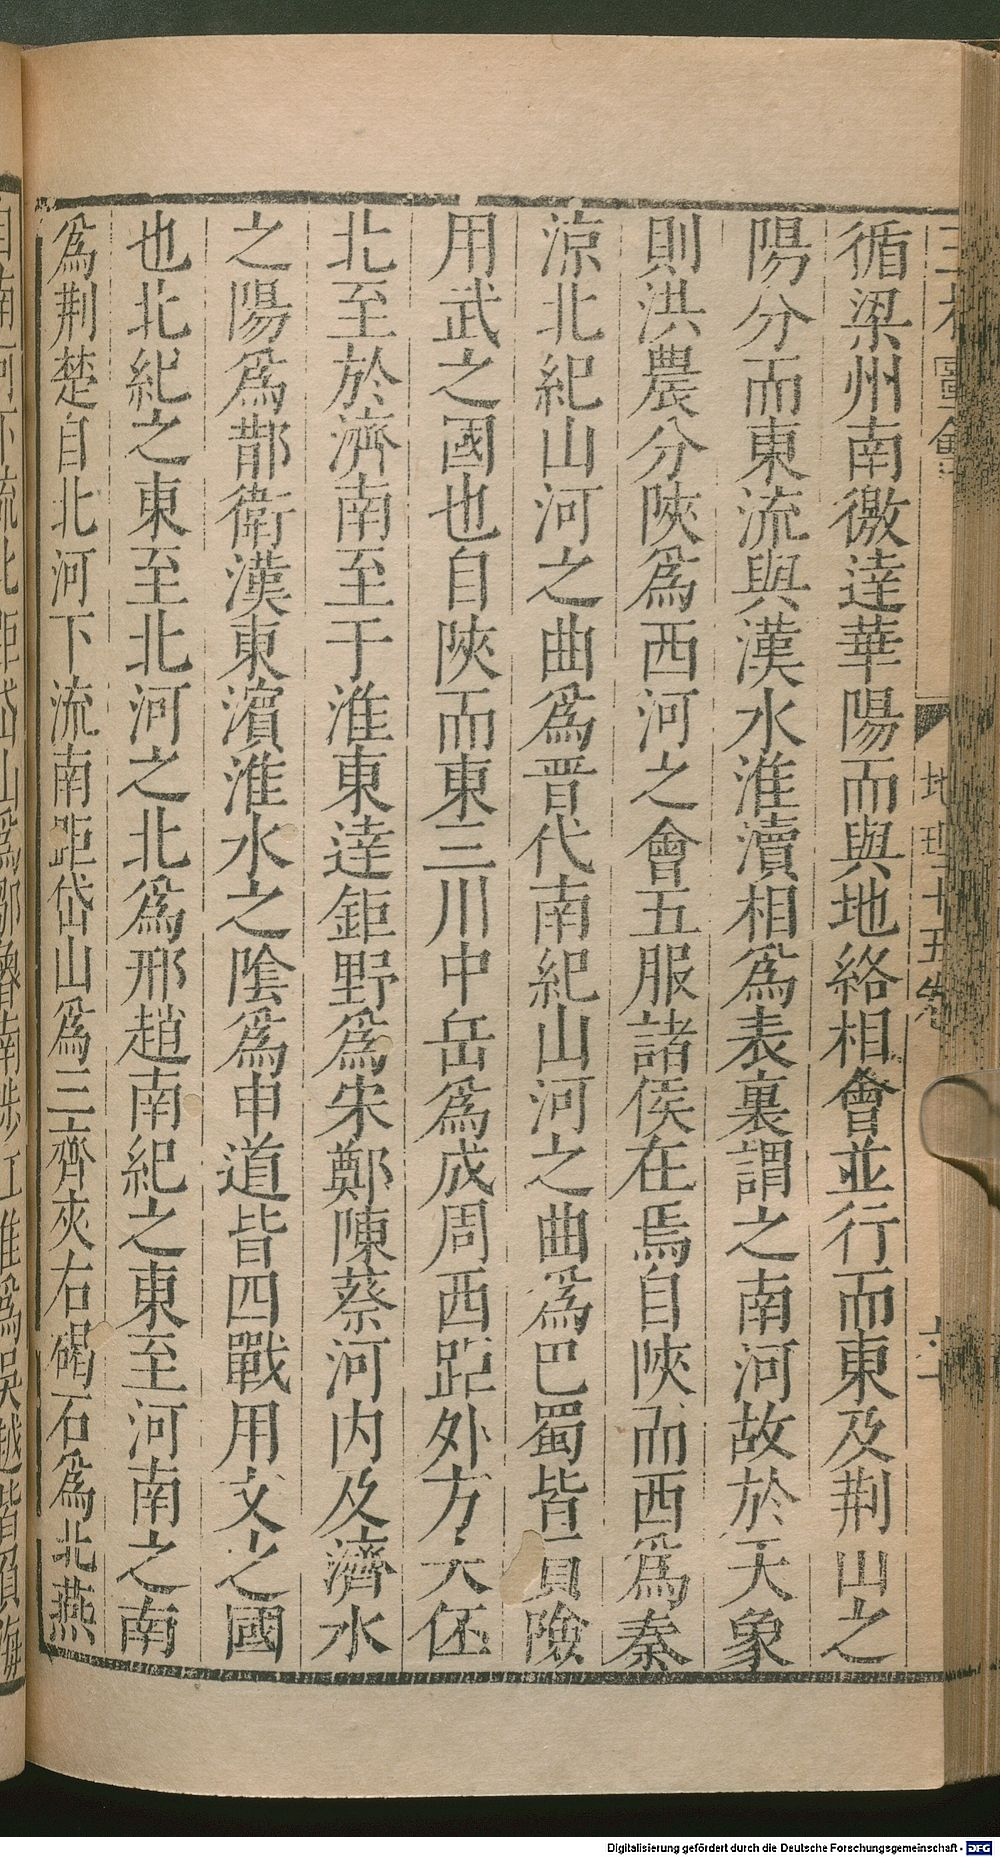 循梁州南徼達華陽而與地絡相會並行而東及荆山之
陽分而東流與漢水淮瀆相爲表裏謂之南河故於天象
則洪農分陝爲西河之會五服諸侯在焉自陝而西爲秦
涼北紀山河之曲爲晋代南紀山河之曲爲巴蜀皆負險
用武之國也自陝而東三川中岳爲成周西距外方大伾
北至於濟南至于淮東達鉅野爲宋鄭陳蔡河内及濟水
之陽爲鄁衛漢東濵淮水之隂爲申道皆四戰用文之國
也北紀之東至北河之北爲邢趙南紀之東至河南之南
爲荆楚自北河下流南距岱山爲三齊夾右碣石爲北燕
自南河下流北距岱山爲鄒魯南涉江淮爲吳越皆負海
地理十五卷
Digitalisierung gefördert durch die Deutsche Forschungsgemeinschaft - DFG